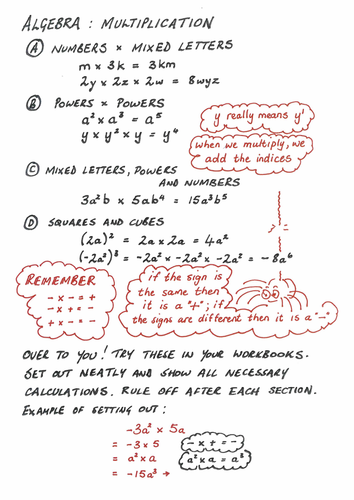 ALGEBRA : MULTIPLICATION
Ⓐ NUMBERS × MIXED LETTERS
m × 3k = 3km
2y × 2z × 2w = 8wyz
Ⓑ POWERS × POWERS
a² × a³ = a⁵
y × y² × y = y⁴
y really means y¹
when we multiply, we
add the indices
Ⓒ MIXED LETTERS, POWERS
AND NUMBERS
3a²b × 5ab⁴ = 15a³b⁵
Ⓓ SQUARES AND CUBES
(2a)² = 2a × 2a = 4a²
(-2a²)³ = -2a² × -2a² × -2a² = -8a⁶
REMEMBER
- × - = +
- × + = -
+ × - = -
if the sign is
the same then
it is a "+"; if
the signs are different then it is a "-"
OVER TO YOU! TRY THESE IN YOUR WORKBOOKS.
SET OUT NEATLY AND SHOW ALL NECESSARY
CALCULATIONS. RULE OFF AFTER EACH SECTION.
EXAMPLE OF SETTING OUT :
-3a² × 5a
= -3 × 5
= a² × a
= -15a³ →
- × + = -
a² × a = a³